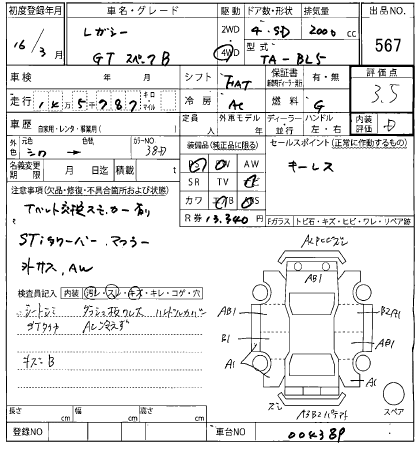 初度登録年月 車名・グレード 駆動 ドア数・形状 排気量 出品NO.
16/3月 レガシー 2WD 4・SD 2000cc 567
GT スペックB 4WD 型式 TA-BL5
車検 年 月 シフト FAT 保証書 有・無 評価点
走行 145千787 キロ マイル 冷房 AC 燃料 G 3.5
車歴 自家用・レンタ・事業用( ) 定員 外車モデル 年 ディーラー 並行 ハンドル 左・右 内装評価 D
外色 元色 シロ 色替 カラーNO 38D 装備品(純正品に限る) セールスポイント(正常に作動するもの)
名義変更期限 月 日迄 積載 t PS PW AW キーレス
注意事項(欠品・修復・不具合箇所および状態) SR TV
Tベルト交換ステッカー有り カワ ABS
R券 13,340円 Fガラス トビ石・キズ・ヒビ・ワレ・リペア跡
STiタワーバー、マフラー
社外サス、AW
検査員記入 内装 汚レ・スレ・キズ・キレ・コゲ・穴
キズ=B
AB1
AB1 B2A1
B1 AB1
A1 A1
スペア
長さ cm 幅 cm 高さ cm
登録NO 車台NO 004389